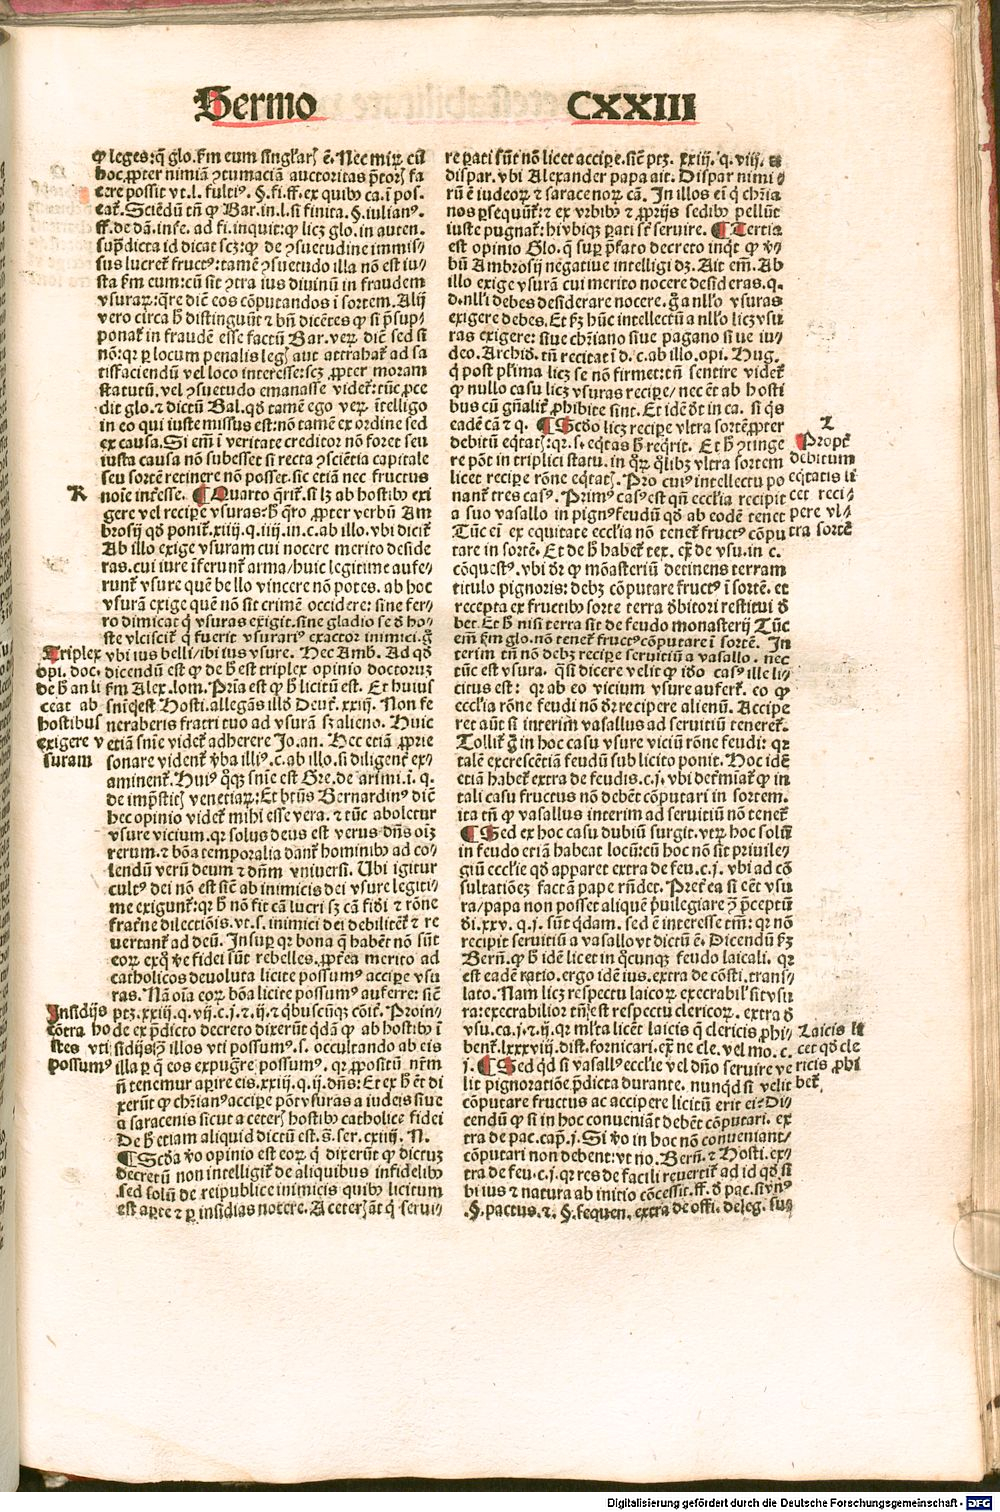 Sermo CXXIII
ꝙ leges: q̃ glo. ẜm eum singl'arꝭ ē. Nec mirꝝ cū
hoc ꝓpter nimiã ↄtumaciã auctoritas p̃torꝭ fa
cere possit vt. l. fulti⁹. §. fi. ff. ex quibꝰ ca. ĩ pos.
eat̃. Sciẽdũ tñ ꝙ Bar. in. l. si finita. §. iulian⁹.
ff. de dã. infe. ad fi. inquit: ꝙ licꝫ glo. in auten.
supͣdicta id dicat scꝫ: ꝙ de ↄsuetudine immis/
sus lucret̃ fruct⁹: tamẽ ↄsuetudo illa nõ est iu/
sta ẜm eum: cũ sit ↄtra ius diuinũ in fraudem
vsuraꝝ: q̃re diẽt eos cõputandos ĩ sortem. Alij
vero circa h̃ distinguũt ⁊ bñ dicẽtes ꝙ si p̃sup/
ponat̃ in fraudẽ esse factũ Bar. veꝝ dicit sed si
nõ: qꝛ ꝑ locum penalis legꝭ aut attrahat̃ ad sa
tisfaciendũ vel loco interesse: scꝫ ꝓpter moram
statutũ. vel ↄsuetudo emanasse videt̃: tũc ꝓce
dit glo. ⁊ dictũ Bal. qđ tamẽ ego veꝝ ĩtelligo
in eo qui iuste missus est: nõ tamẽ ex ordine sed
ex causa. Si em̃ ĩ veritate creditor nõ foret seu
iusta causa nõ subesset si recta ↄsciẽtia capitale
seu sortẽ retinere nõ posset. sic etiã nec fructus
K
noĩe int̃esse. ¶ Quarto q̃rit̃. si lꝫ ab hostibꝰ exi
gere vel recipe vsuras: h̃ q̃ro ꝓpter verbũ Am
brosij qđ ponit̃. xiiij. q. iiij. in. c. ab illo. vbi dicit̃
Ab illo exige vsuram cui nocere merito deside
ras. cui iure ĩferunt̃ arma/ huic legitime aufe/
runt̃ vsure quẽ bello vincere nõ potes. ab hoc
vsurã exige quẽ nõ sit crimẽ occidere: sine fer/
ro dimicat q̃ vsuras exigit. sine gladio se đ ho/
ste vlciscit̃ q̃ fuerit vsurari⁹ exactor inimici. g̃
vbi ius belli/ ibi ius vsure. Hec Amb. Ad qđ
Triplex
opi. doc.
de h̃ an li
ceat ab
hostibus
exigere v
suram
dicendũ est ꝙ de h̃ est triplex opinio doctoruꝫ
ẜm Alex. lom. Pria est ꝙ h̃ licitũ est. Et huius
sniẽ est Hosti. allegãs illđ Deut̃. xxiij. Non fe
neraberis fratri tuo ad vsurã sꝫ alieno. Huic
etiã snĩe videt̃ adherere Jo. an. Hec etiã ꝓprie
sonare vident̃ v̄ba illi⁹. c. ab illo. si diligent̃ ex/
aminent̃. Hui⁹ q̃qꝫ snĩe est Gre. de arimi. i. q.
de imp̃stitꝭ venetiaꝝ: Et bt̃us Bernardin⁹ diẽ
hec opinio videt̃ mihi esse vera. ⁊ tũc aboletur
vsure vicium. qꝛ solus deus est verus dñs oĩꝫ
rerum. ⁊ bõa temporalia dant̃ hominibꝰ ad co/
lendũ verũ deum ⁊ dñm vniuersi. Ubi igitur
cult⁹ dei nõ est sicut̃ ab inimicis dei vsure legiti/
me exigunt̃: qꝛ h̃ nõ fit cã lucri sꝫ cã fiđi ⁊ rõne
frat̃ne dilectiõis. vt. s. inimici dei debilitẽt̃ ⁊ re
uertant̃ ad deũ. Insuꝑ qꝛ bona q̃ habẽt nõ sũt
eoꝝ exq̃ ṽe fidei sũt rebelles. ꝓpt̃ea merito ad
catholicos deuoluta licite possum⁹ accipe vsu
ras. Nã oĩa eoꝝ bõa licite possum⁹ auferre: sic̃
Insidijs
cõtra ho
stes vti
possum⁹
ptꝫ. xxiij. q. vij. c. j. ⁊. ij. ⁊ q̃buscũqꝫ cõit̃. Proin/
de ex p̃dicto decreto dixerũt q̃dã ꝙ ab hostibꝰ ĩ
sidijs sꝫ illos vti possum⁹. s. occultando ab eis
illa ꝑ q̃ eos expugr̃e possum⁹. qꝛ ꝓpositũ nr̃m
ñ tenemur apire eis. xxiij. q. ij. dñs: Et ex h̃ ẽt di
xerũt ꝙ chr̃ian⁹ accipe põt vsuras a iudeis siue
a saracenis sicut a ceterꝭ hostibꝰ catholice fidei
De h̃ etiam aliquid dictũ est. s̃. ser. cxiiij. N.
¶ Scđa v̄o opinio est eoꝝ q̃ dixerũt ꝙ dictuꝫ
decretũ non intelligit̃ de aliquibus infidelibꝰ
sed solũ de reipublice inimicis quibꝰ licitum
est apte ⁊ ꝑ insidias nocere. A ceterꝭ ãt q̃ serui/
re ꝑati sũt nõ licet accipe. sic̃ ptꝫ. xxiij. q. viij. ⁊
dispar. vbi Alexander papa ait. Dispar nimi
rũ ẽ iudeoꝝ ⁊ saracenoꝝ cã. In illos eĩ q̃ chr̃ia
nos ꝑsequũt̃: ⁊ ex vrbibꝰ ⁊ ꝓprijs sedibꝰ pellũt
iuste pugnat̃: hi vbiqꝫ ꝑati sũt seruire. ¶ Tertia
est opinio Glo. q̃ suꝑ p̃fato decreto inq̃t ꝙ v̄
bũ Ambrosij negatiue intelligi dꝫ. Ait em̃. Ab
illo exige vsurã cui merito nocere desideras. q.
d. nll'i debes desiderare nocere. g̃ a nll'o vsuras
exigere debes. Et ẜꝫ hũc intellectũ a nllo licꝫ vsu
ras exigere: siue chr̃iano siue pagano siue iu/
deo. Archiđ. tñ recitat ĩ đ. c. ab illo. opi. Hug.
q̃ post pl'ima licꝫ se nõ firmet: tñ sentire videt̃
ꝙ nullo casu licꝫ vsuras recipe/ nec ẽt ab hosti
bus cũ gñalit̃ ꝓhibite sint. Et idẽ đt in ca. si q̃s
eadẽ cã ⁊ q. ¶ Scđo licꝫ recipe vltra sortẽ ꝓpter
L
Propt̃
debitum
eq̃tatis li
cet reci/
pere vl/
tra sortẽ
debitũ eq̃tatꝭ: qꝛ. s. eq̃tas h̃ req̃rit. Et h̃ ↄtinge
re põt in triplici statu. in q̃ꝝ q̃libꝫ vltra sortem
licet recipe rõne eq̃tatꝭ. Pro cui⁹ intellectu po
nant̃ tres cas⁹. Prim⁹ cas⁹ est qñ ecclia recipit
a suo vasallo in pign⁹ feudũ qđ ab eodẽ tenet
Tũc eĩ ex equitate ecclia nõ tenet̃ fruct⁹ cõpu
tare in sortẽ. Et de h̃ habet̃ tex. ex̃ de vsu. in c.
cõquest⁹. vbi đr ꝙ mõasteriũ detinens terram
titulo pignoris: debꝫ cõputare fruct⁹ ĩ sortẽ. et
recepta ex fructibꝰ sorte terra đbitori restitui đ
bet. Et h̃ nisi terra sit de feudo monasterij Tũc
em̃ ẜm glo. nõ tenet̃ fruct⁹ cõputare ĩ sortẽ. In
terim tñ nõ debꝫ recipe seruitiũ a vasallo. nec
tũc est vsura. q̃si dicere velit ꝙ iđo cas⁹ ille li/
citus est: qꝛ ab eo vicium vsure aufert̃. eo ꝙ
ecclia rõne feudi nõ đr recipere alienũ. Accipe
ret aũt si interim vasallus ad seruitiũ teneret̃.
Tollit̃ g̃ in hoc casu vsure viciũ rõne feudi: qꝛ
talẽ excrescẽtiã feudũ sub licito ponit. Hoc idẽ
etiã habet̃ extra de feudis. c. j. vbi det̃miat̃ ꝙ in
tali casu fructus nõ debẽt cõputari in sortem.
ita tñ ꝙ vasallus interim ad seruitiũ nõ tenet̃
¶ Sed ex hoc casu dubiũ surgit. vtꝝ hoc solũ
in feudo etiã habeat locũ: cũ hoc nõ sit priuile/
giũ ecclie qđ apparet extra de feu. c. j. vbi ad cõ
sultatiõeꝫ factam pape rñdet. Pret̃ea si eẽt vsu
ra/ papa non posset aliquẽ p̃uilegiare ↄ̃ p̃ceptũ
đi. xxv. q. j. sũt q̃dam. sed ẽ interesse tm̃: qꝛ nõ
recipit seruitiũ a vasallo vt dictũ ẽ. Dicendũ ẜꝫ
Berñ. ꝙ h̃ idẽ licet in q̃cunqꝫ feudo laicali. qꝛ
est eadẽ ratio. ergo idẽ ius. extra de cõsti. trans/
lato. Nam licꝫ respectu laicoꝝ execrabil' sit vsu
ra: execrabilior tñ est respectu clericoꝝ. extra đ
vsu. ca. j. ⁊. ij. qꝛ ml'ta licẽt laicis q̃ clericis ꝓhi/
Laicis li
cet qđ cle
ricis ꝓhi
bet̃.
bent̃. lxxxviij. dist. fornicari. ex̃ ne cle. vel mo. c.
j. ¶ Sed qđ si vasall⁹ ecclie vel dño seruire ve
lit pignoratiõe p̃dicta durante. nunqđ si velit
cõputare fructus ac accipere licitũ erit ei? Di/
cendũ ꝙ si in hoc conueniãt debẽt cõputari. ex
tra de pac. cap. j. Si v̄o in hoc nõ conueniant/
cõputari non debent: vt no. Berñ. ⁊ Hosti. ex/
tra de feu. c. j. qꝛ res de facili reuertit̃ ad id qđ si
bi ius ⁊ natura ab initio cõcessit. ff. đ pac. si vn⁹
.§. pactus. ⁊. §. sequen. extra de offi. deleg. sup
Digitalisierung gefördert durch die Deutsche Forschungsgemeinschaft - DFG